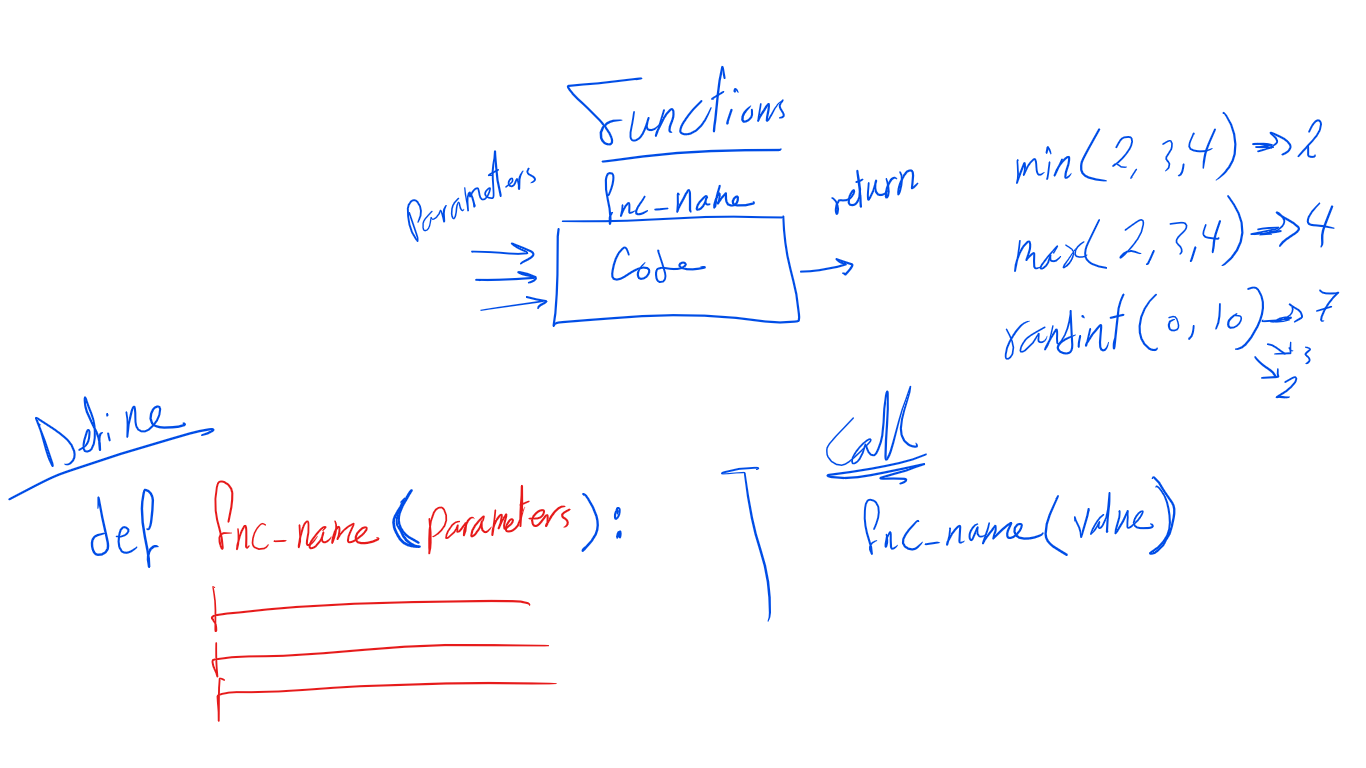 Functions
Parameters
fnc_name
return
Code
min(2, 3,4) → 2
max(2, 3,4) → 4
randint(0, 10) → 7
→ 3
→ 2
Define
def fnc_name(parameters):
Call
fnc_name(value)